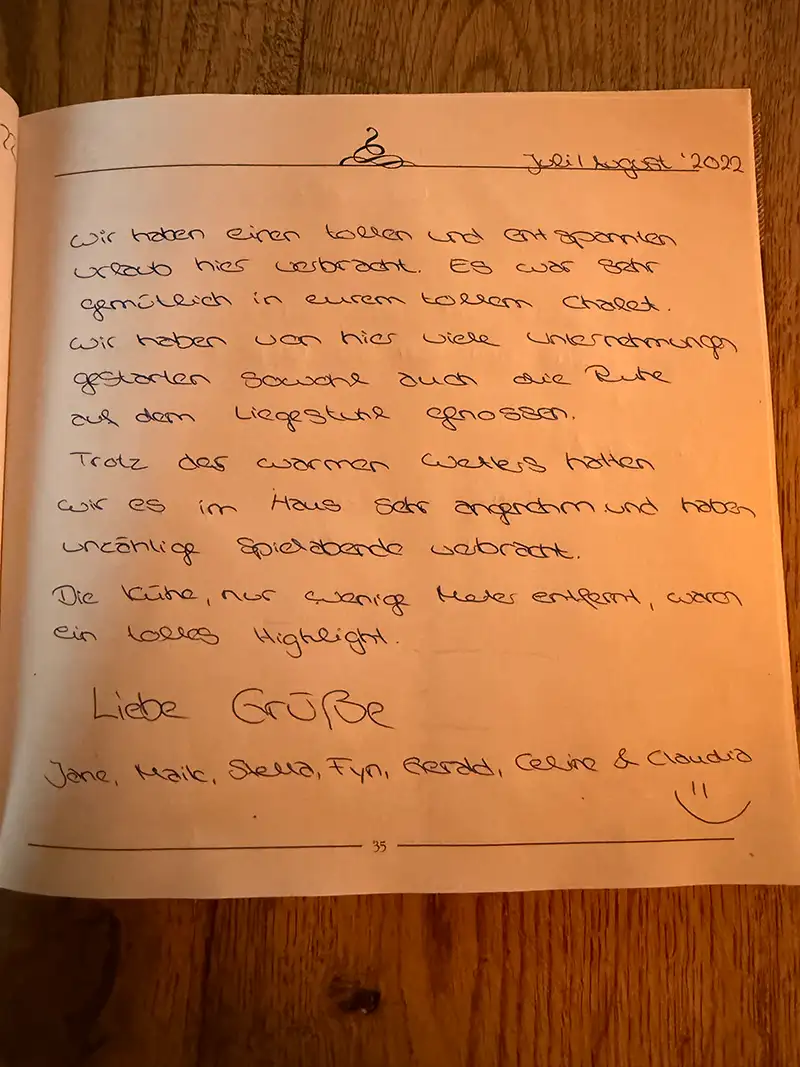 Juli/August '2022
Wir haben einen tollen und entspannten
Urlaub hier verbracht. Es war sehr
gemütlich in eurem tollem Chalet.
Wir haben von hier viele Unternehmungen
gestarten sowohl auch die Ruhe
auf dem Liegestuhl genossen.
Trotz des warmen Wetters hatten
wir es im Haus sehr angenehm und haben
unzählige Spielabende verbracht.
Die Kühe, nur wenige Meter entfernt, waren
ein tolles Highlight.
Liebe Grüße
Jane, Maik, Stella, Fyn, Gerald, Celine & Claudia
35